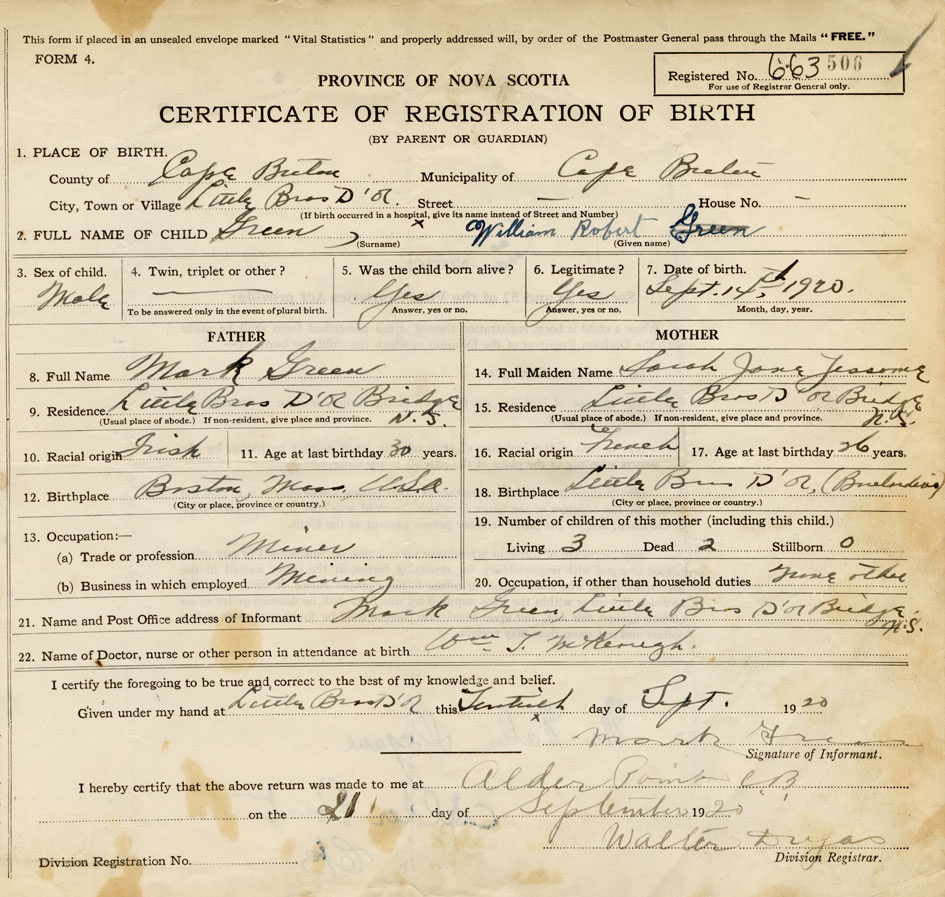 This form if placed in an unsealed envelope marked "Vital Statistics" and properly addressed will, by order of the Postmaster General pass through the Mails "FREE."
FORM 4.
PROVINCE OF NOVA SCOTIA
Registered No. 663 506
For use of Registrar General only.
CERTIFICATE OF REGISTRATION OF BIRTH
(BY PARENT OR GUARDIAN)
1. PLACE OF BIRTH.
County of Cape Breton Municipality of Cape Breton
City, Town or Village Little Bras D'Or. Street — House No. —
(If birth occurred in a hospital, give its name instead of Street and Number)
2. FULL NAME OF CHILD Green William Robert Green
(Surname) (Given name)
3. Sex of child. 4. Twin, triplet or other? 5. Was the child born alive? 6. Legitimate? 7. Date of birth.
Male — Yes Yes Sept. 14th, 1920.
To be answered only in the event of plural birth. Answer, yes or no. Answer, yes or no. Month, day, year.
FATHER MOTHER
8. Full Name Mark Green 14. Full Maiden Name Sarah Jane Jessome
9. Residence. Little Bras D'Or Bridge N.S. 15. Residence Little Bras D'Or Bridge N.S.
(Usual place of abode.) If non-resident, give place and province. (Usual place of abode.) If non-resident, give place and province.
10. Racial origin Irish 11. Age at last birthday 30 years. 16. Racial origin French 17. Age at last birthday 26 years.
12. Birthplace Boston, Mass, U.S.A. 18. Birthplace Little Bras D'Or,
(City or place, province or country.) (City or place, province or country.)
13. Occupation:— 19. Number of children of this mother (including this child.)
(a) Trade or profession Miner Living 3 Dead 2 Stillborn 0
(b) Business in which employed Mining 20. Occupation, if other than household duties None other
21. Name and Post Office address of Informant Mark Green, Little Bras D'Or Bridge, N.S.
22. Name of Doctor, nurse or other person in attendance at birth Wm. J. McKeough.
I certify the foregoing to be true and correct to the best of my knowledge and belief.
Given under my hand at Little Bras D'Or this day of Sept. 1920
Mark Green
Signature of Informant.
I hereby certify that the above return was made to me at Alder Point C.B
on the 21 day of September 1920
Walter Dugas
Division Registration No. Division Registrar.